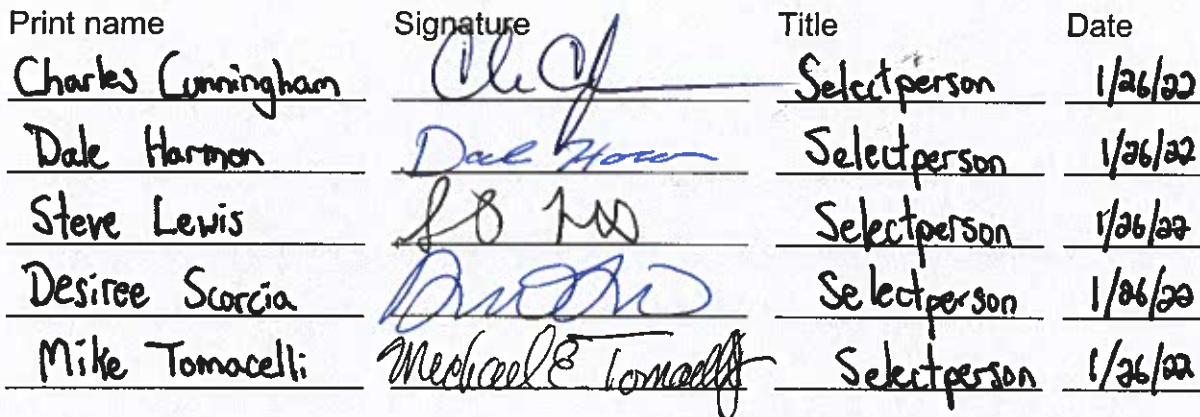 Print name Signature Title Date
Charles Cunningham Selectperson 1/26/22
Dale Harmon Dale Selectperson 1/26/22
Steve Lewis Selectperson 1/26/22
Desiree Scorcia Selectperson 1/26/22
Mike Tomacelli Michael E Tomacelli Selectperson 1/26/22